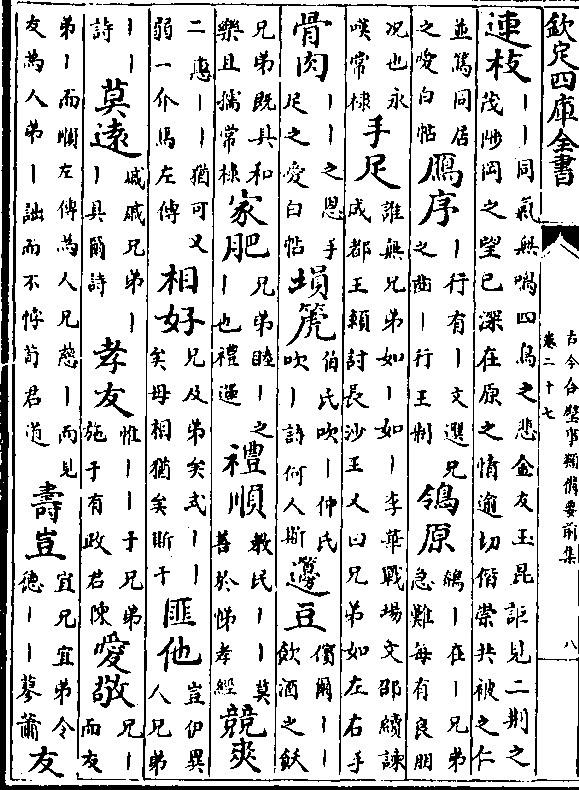 欽定四庫全書
古今合璧事類備要前集
卷二十七
八
連枝——同氣無鳴四鳥之悲金友玉昆詎見二荆之茂陟岡之望已深在原之情逾切偕榮共被之仁
並篤同居之愛白帖鴈序—行有—文選兄之齒—行王制鴒原鶺—在—兄弟急難每有良朋
况也永嘆常棣手足誰無兄弟如—如—李華戰場文邵續諫成都王穎討長沙王乂曰兄弟如左右手
骨肉——之恩手足之愛白帖塤箎伯氏吹—仲氏吹—詩何人斯籩豆儐爾——飲酒之飫
兄弟既具和樂且孺常棣家肥兄弟睦—之—也禮運禮順敎民——莫善於悌孝經競爽
二惠——猶可又弱一介馬左傳相好兄及弟矣式——矣毋相猶矣斯干匪他豈伊異人兄弟
——詩莫遠戚戚兄弟——具爾詩孝友惟——于兄弟施于有政君陳愛敬兄—而友
弟—而順左傳為人兄慈—而見友為人弟—詘而不悖荀君道壽豈宜兄宜弟令德——蓼蕭友